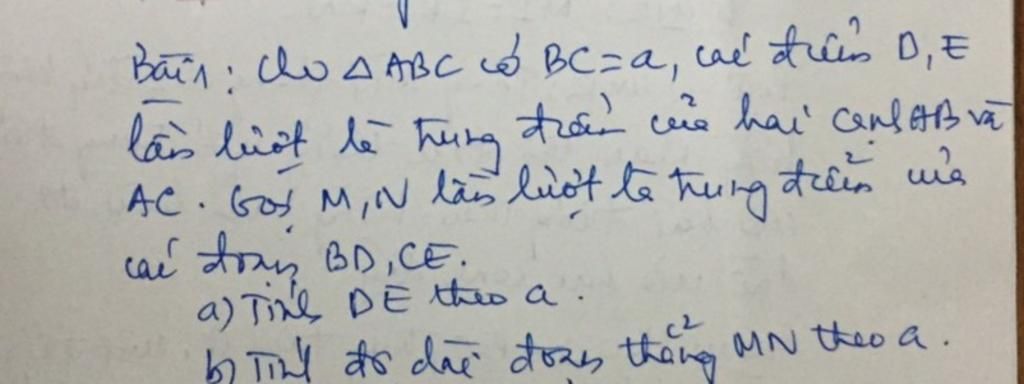 Bài 1: Cho △ ABC có BC = a, các điểm D, E
lần lượt là trung điểm của hai cạnh AB và
AC. Gọi M, N lần lượt là trung điểm của
các đoạn BD, CE.
a) Tính DE theo a.
b) Tính độ dài đoạn thẳng MN theo a.